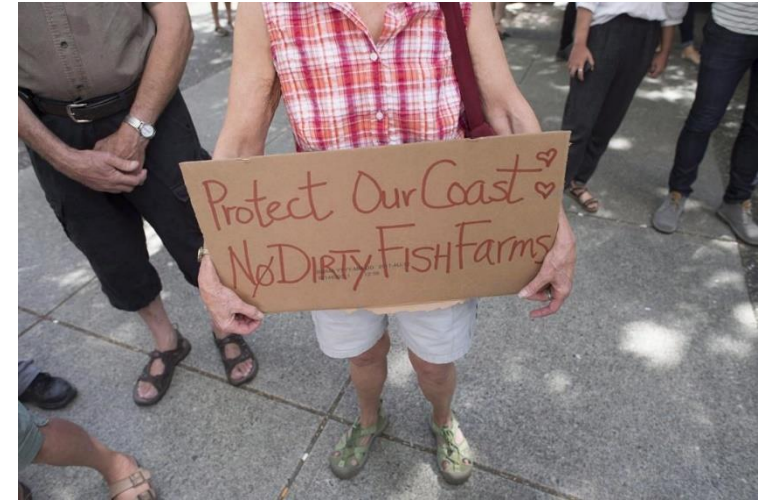 Protect Our Coast ♡♡
NØ DIRTY FISH Farms